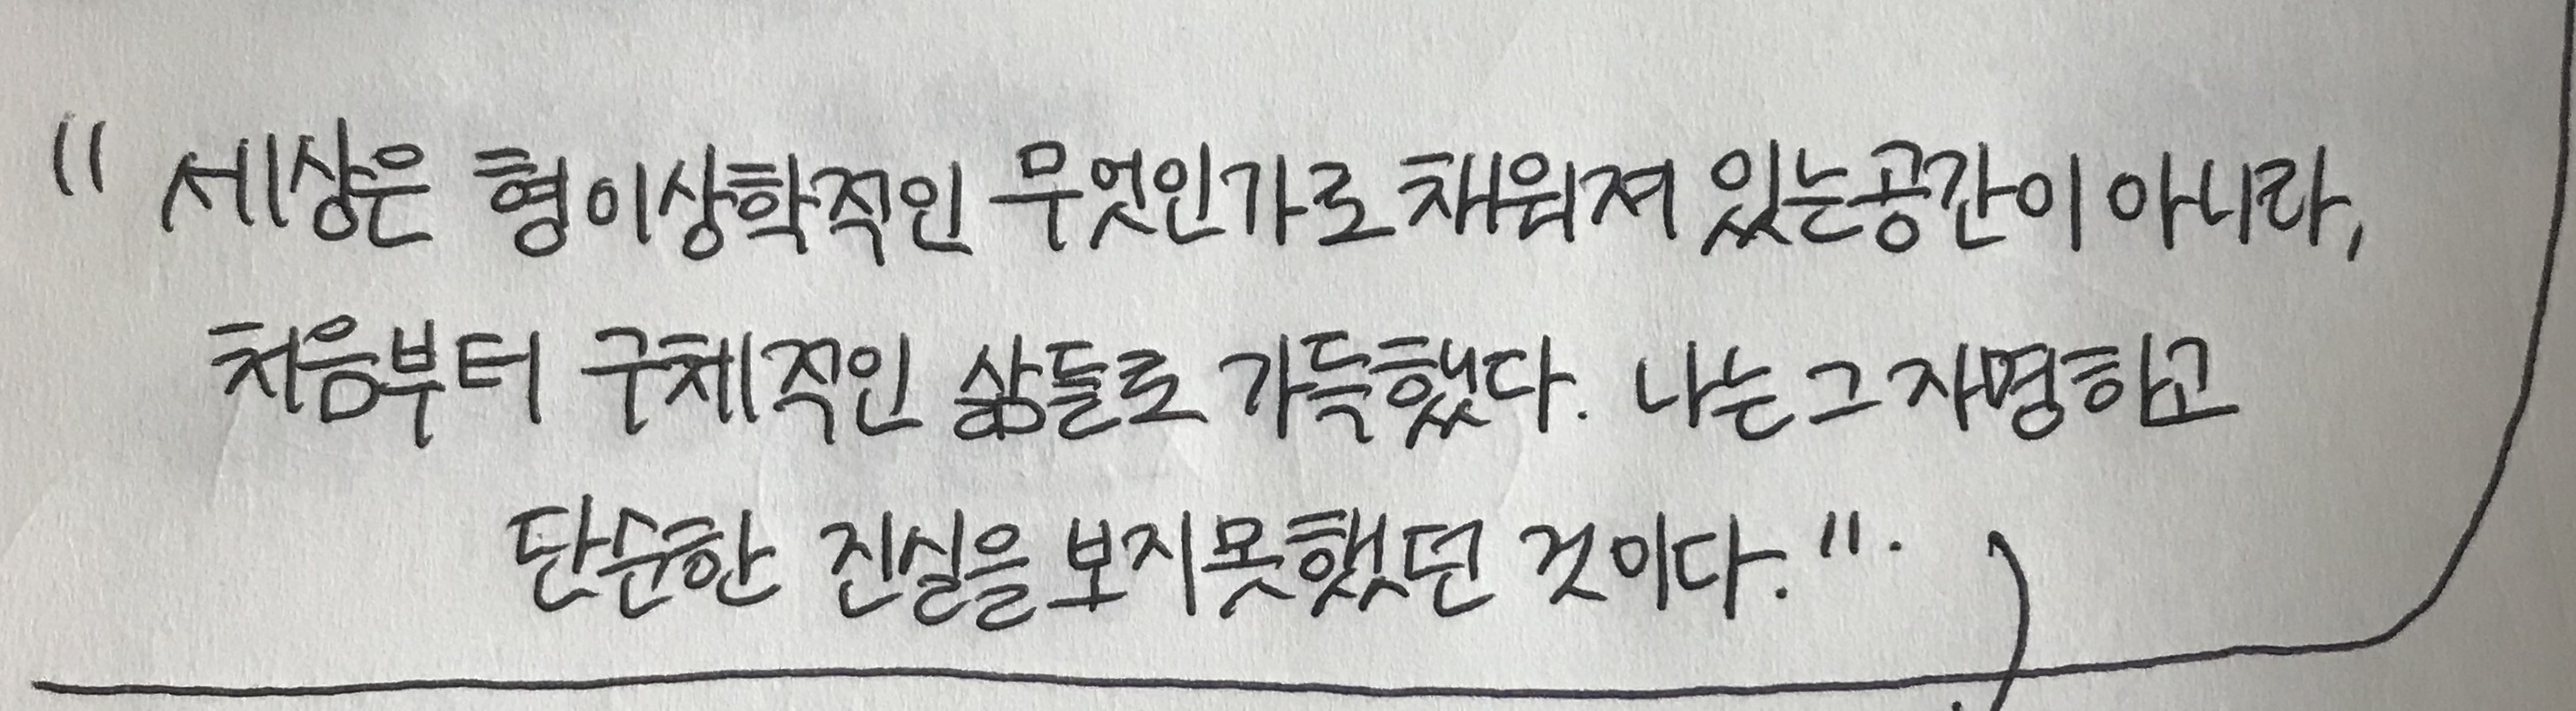 " 세상은 형이상학적인 무엇인가로 채워져 있는 공간이 아니라,
처음부터 구체적인 삶들로 가득했다. 나는 그 자명하고
단순한 진실을 보지 못했던 것이다.".